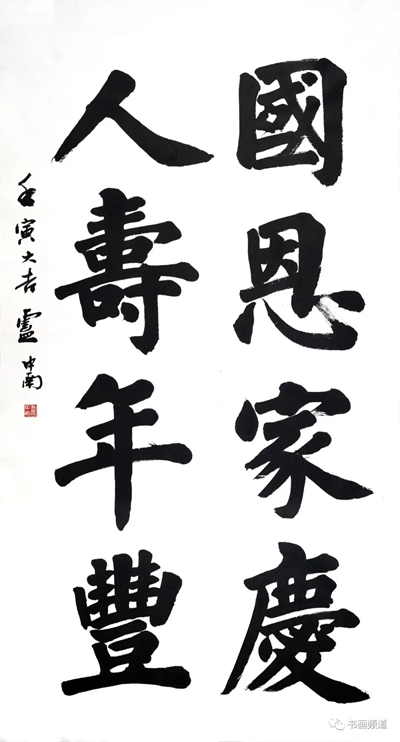 國恩家慶
人壽年豐
壬寅大吉 盧中南
书画频道